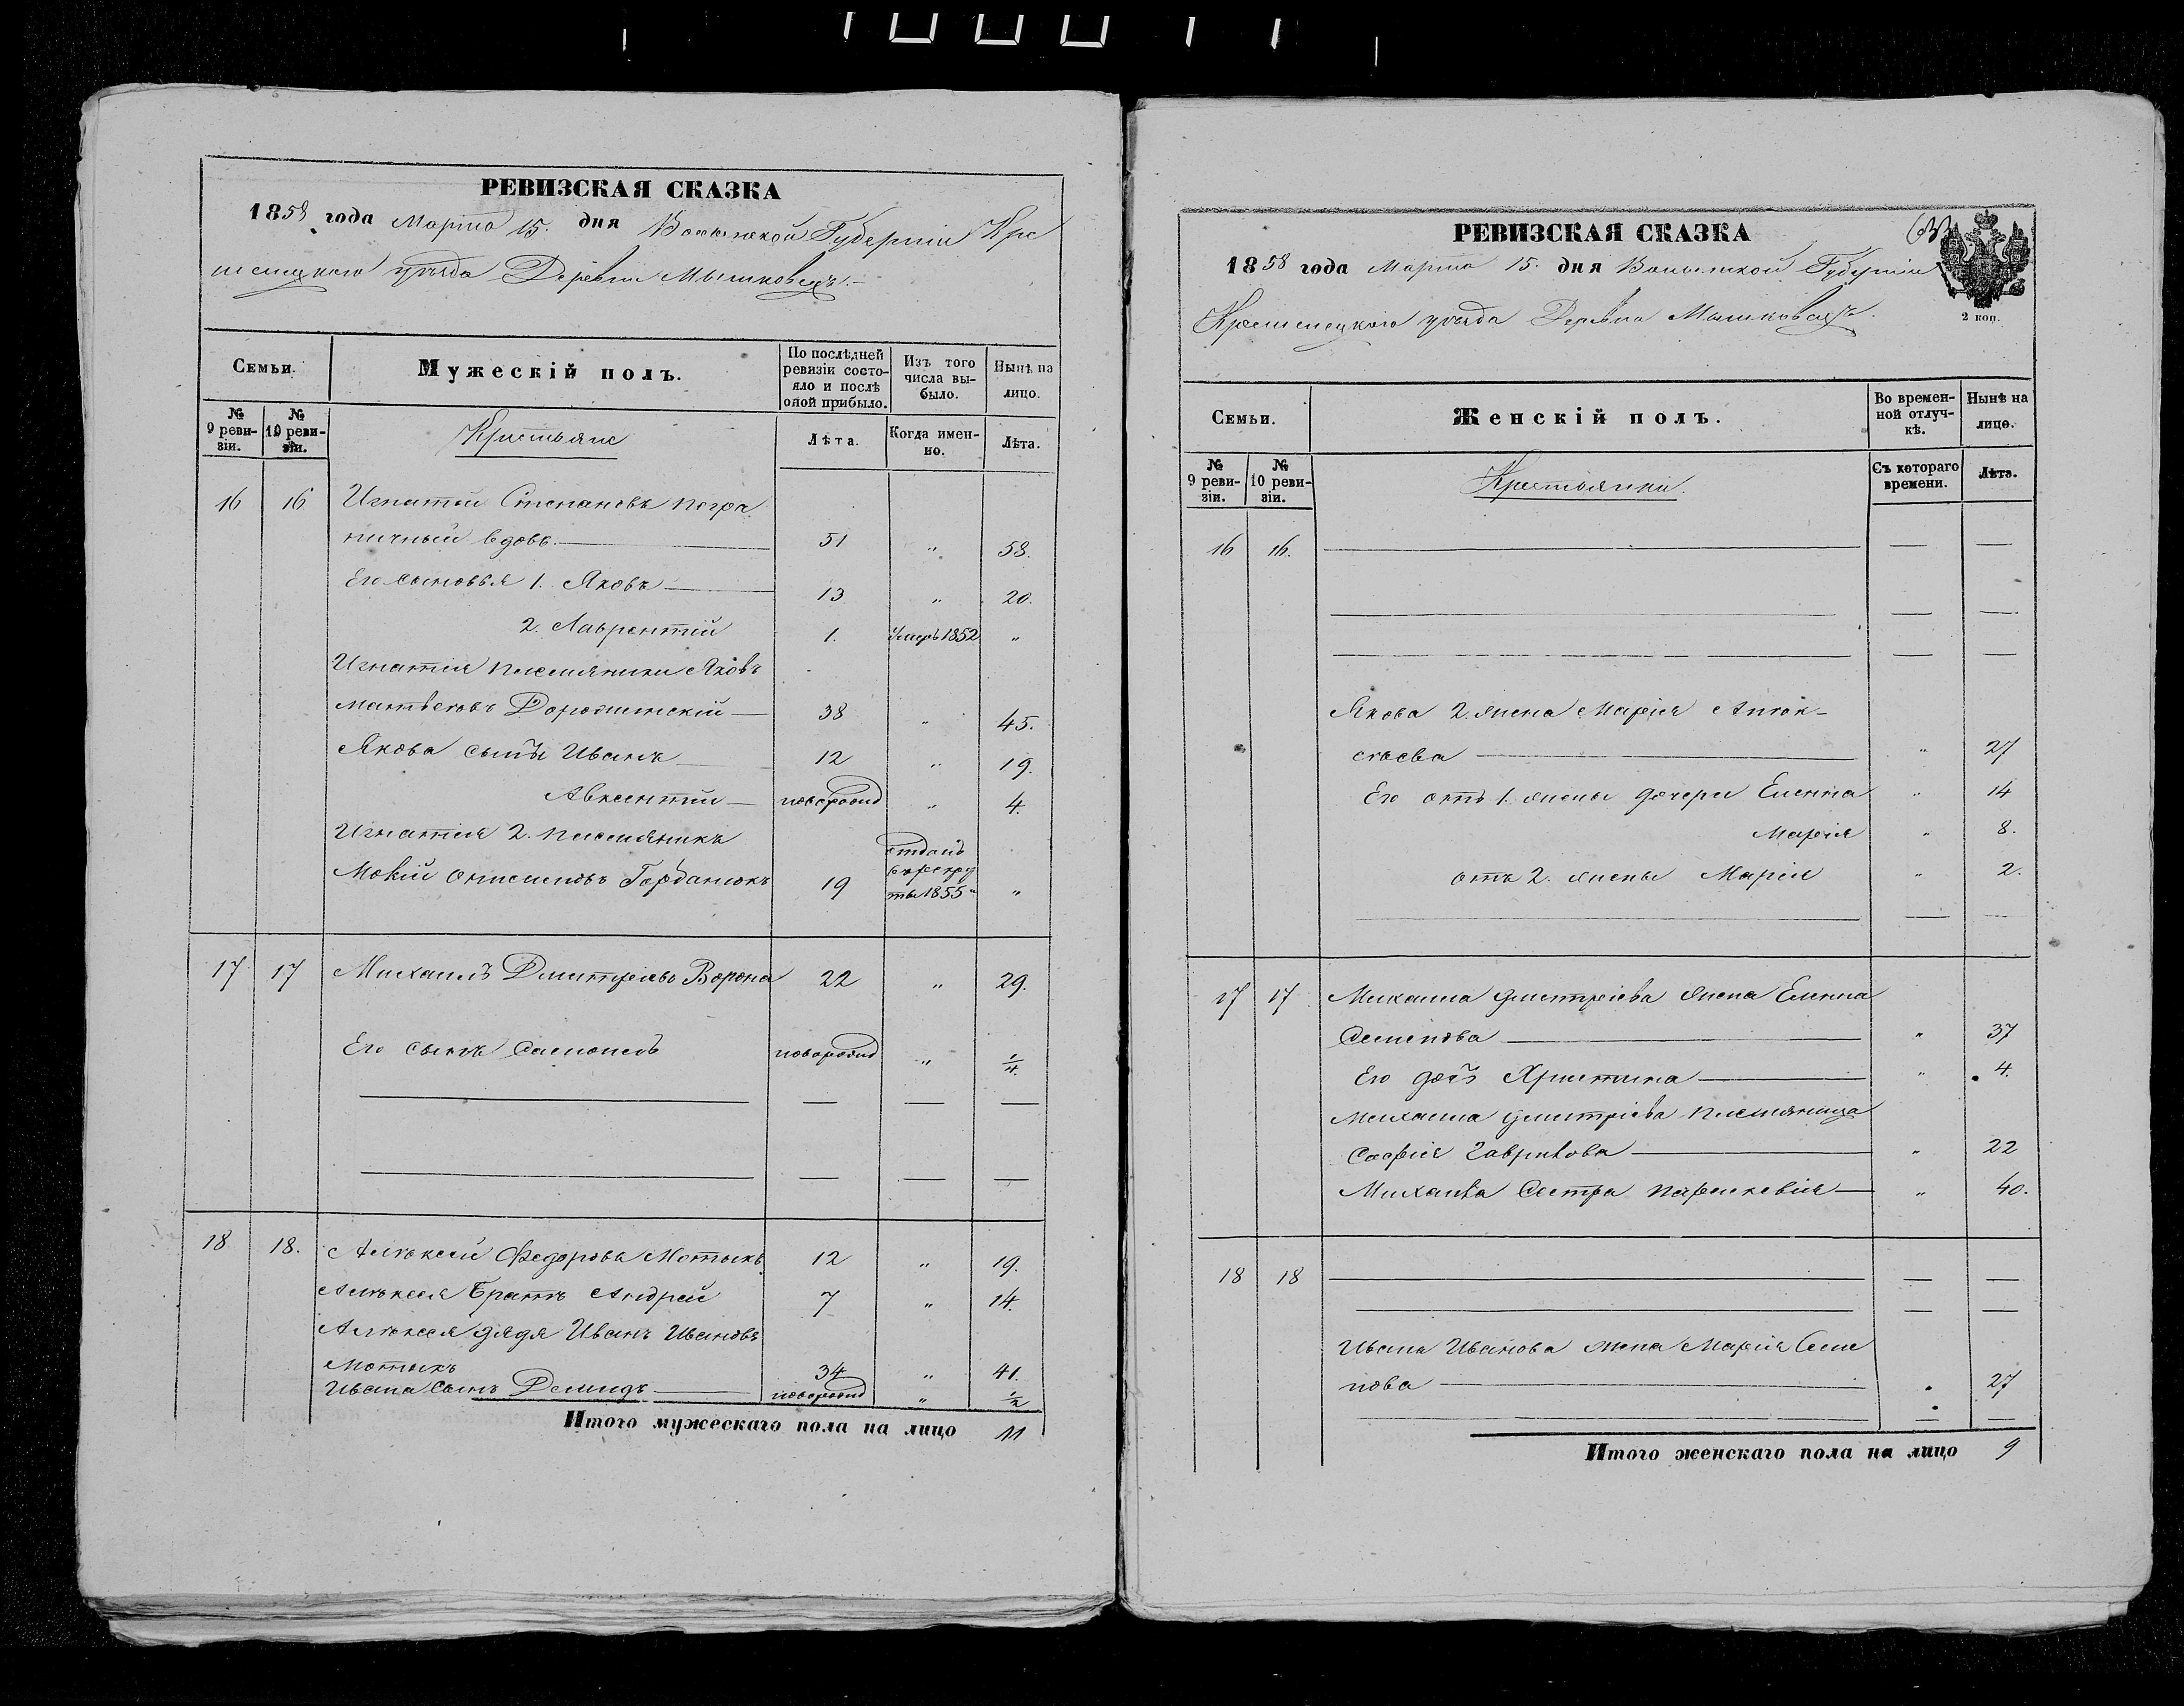 РЕВИЗСКАЯ СКАЗКА
1858 года Марта 15. дня Волынской Губерніи Кре
менецкого уѣзда Деревни Мышковецъ.
Семьи.
Мужескій полъ.
По послѣдней ревизіи состояло и послѣ оной прибыло.
Изъ того числа выбыло.
Нынѣ на лицо.
№ 9 ревизіи.
№ 10 ревизіи.
Крестьяне
Лѣта.
Когда именно.
Лѣта.
16 16 Игнатій Степановъ Погра
ничный вдовъ. 51 " 58.
Его сыновья 1. Яковъ 13 " 20.
2. Лаврентій 1. Умеръ 1852 "
Игнатія племянники Яковъ
Матвѣевъ 38 " 45.
Якова сынъ Иванъ 12 " 19.
Авксентій новорожд " 4.
Игнатія 2. племянникъ
Мокій Онисимовъ Горданюкъ 19 отданъ въ рекруты 1855 "
17 17 Михаилъ Дмитріевъ Ворона 22 " 29.
Его сынъ новорожд " 1/4.
18 18. Алексѣй Федоровъ Мотыкъ 12 " 19.
Алексѣя братъ Андрей 7 " 14.
Алексѣя дядя Иванъ Ивановъ
Мотыкъ 34 " 41.
Ивана сынъ Демидъ новорожд " 1/2
Итого мужескаго пола на лицо 11
РЕВИЗСКАЯ СКАЗКА
1858 года Марта 15. дня Волынской Губерніи
Кременецкого уѣзда Деревни Мышковецъ.
2 коп.
Семьи.
Женскій полъ.
Во временной отлучкѣ.
Нынѣ на лицо.
№ 9 ревизіи.
№ 10 ревизіи.
Крестьянки.
Съ котораго времени.
Лѣта.
16 16.
Якова 2. жена Марія
" 27
Его отъ 1. жены дочери Елена " 14
Марія " 8.
отъ 2. жены Марія " 2.
17 17 Михаила Дмитріева жена Елена
Семенова " 37
Его дочь Христина " 4.
Михаила Дмитріева племяница
Софія Гаврилова " 22
Михаила Сестра Параскевія " 40.
18 18
Ивана Иванова жена Марія Семе
нова 27
Итого женскаго пола на лицо 9